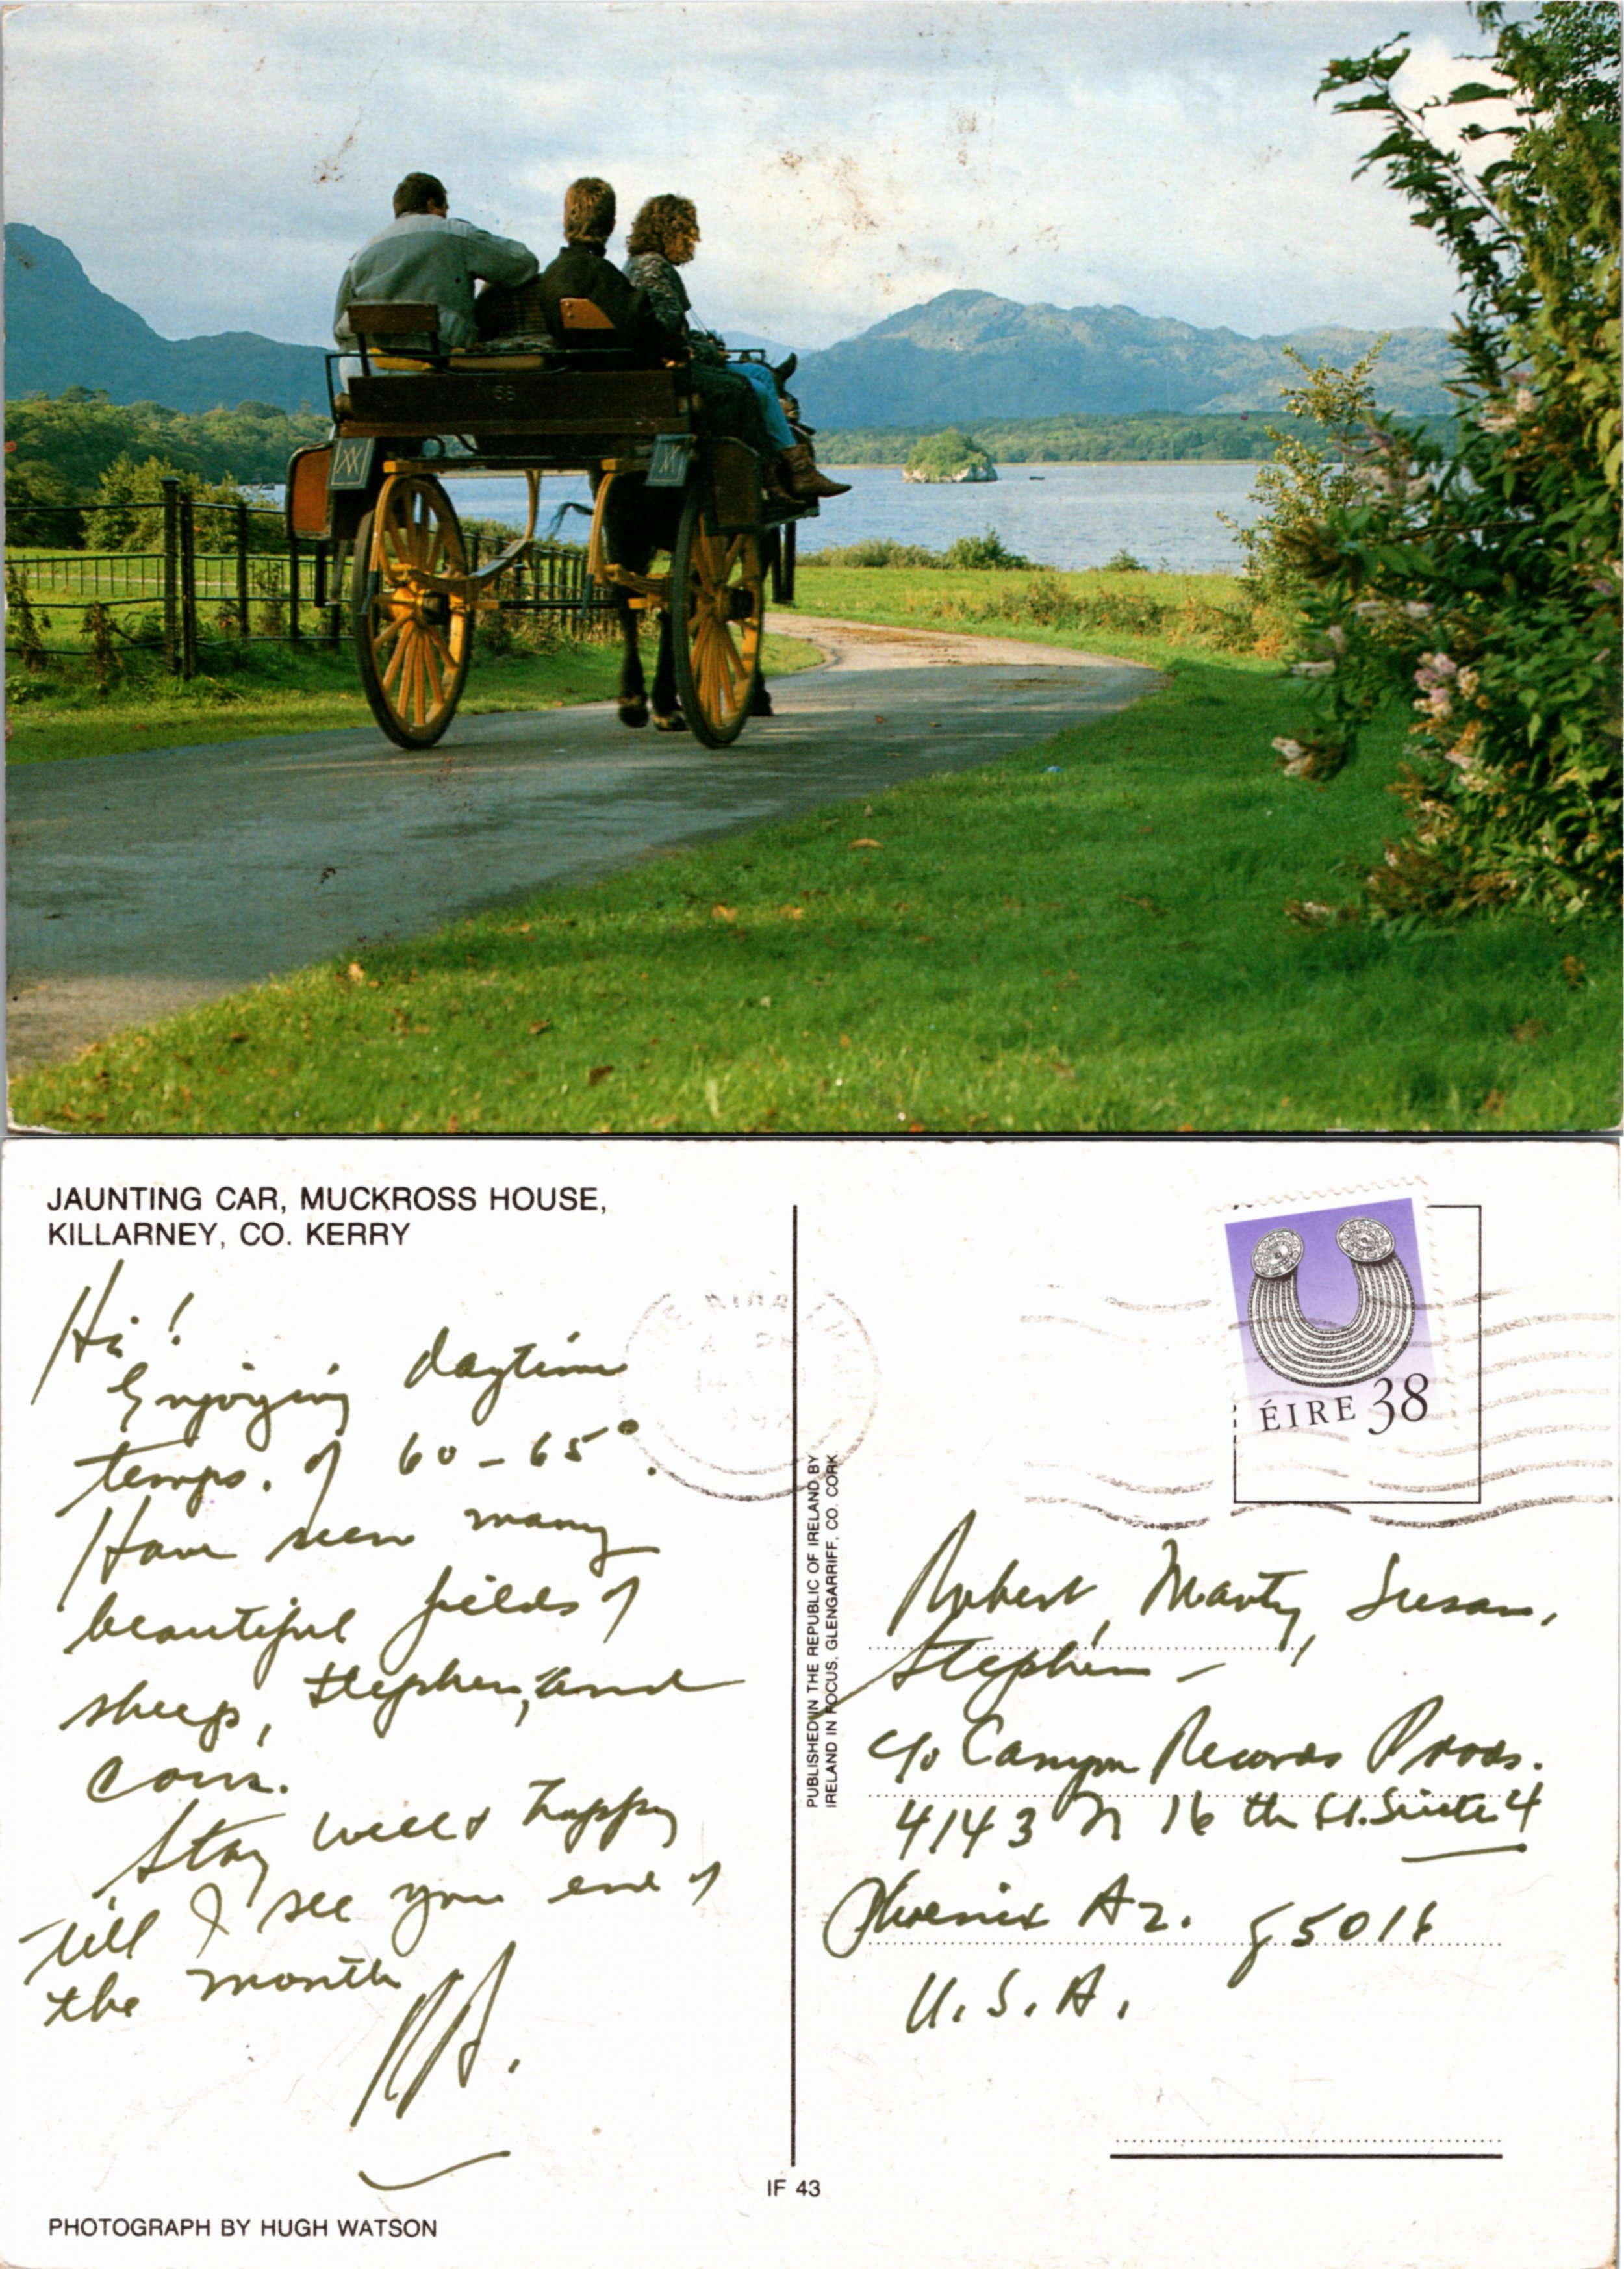 68
JAUNTING CAR, MUCKROSS HOUSE,
KILLARNEY, CO. KERRY
Hi!
Enjoying daytime
temps. of 60-65°.
Have seen many
beautiful fields of
sheep, Stephen, and
corn.
Stay well & happy
till I see you end of
the month
PHOTOGRAPH BY HUGH WATSON
IF 43
PUBLISHED IN THE REPUBLIC OF IRELAND BY
IRELAND IN FOCUS, GLENGARRIFF, CO. CORK.
ÉIRE 38
Robert, Marty, Susan,
Stephen -
c/o Canyon Records Prods.
4143 N 16th St. Suite 4
Phoenix Az. 85016
U.S.A.